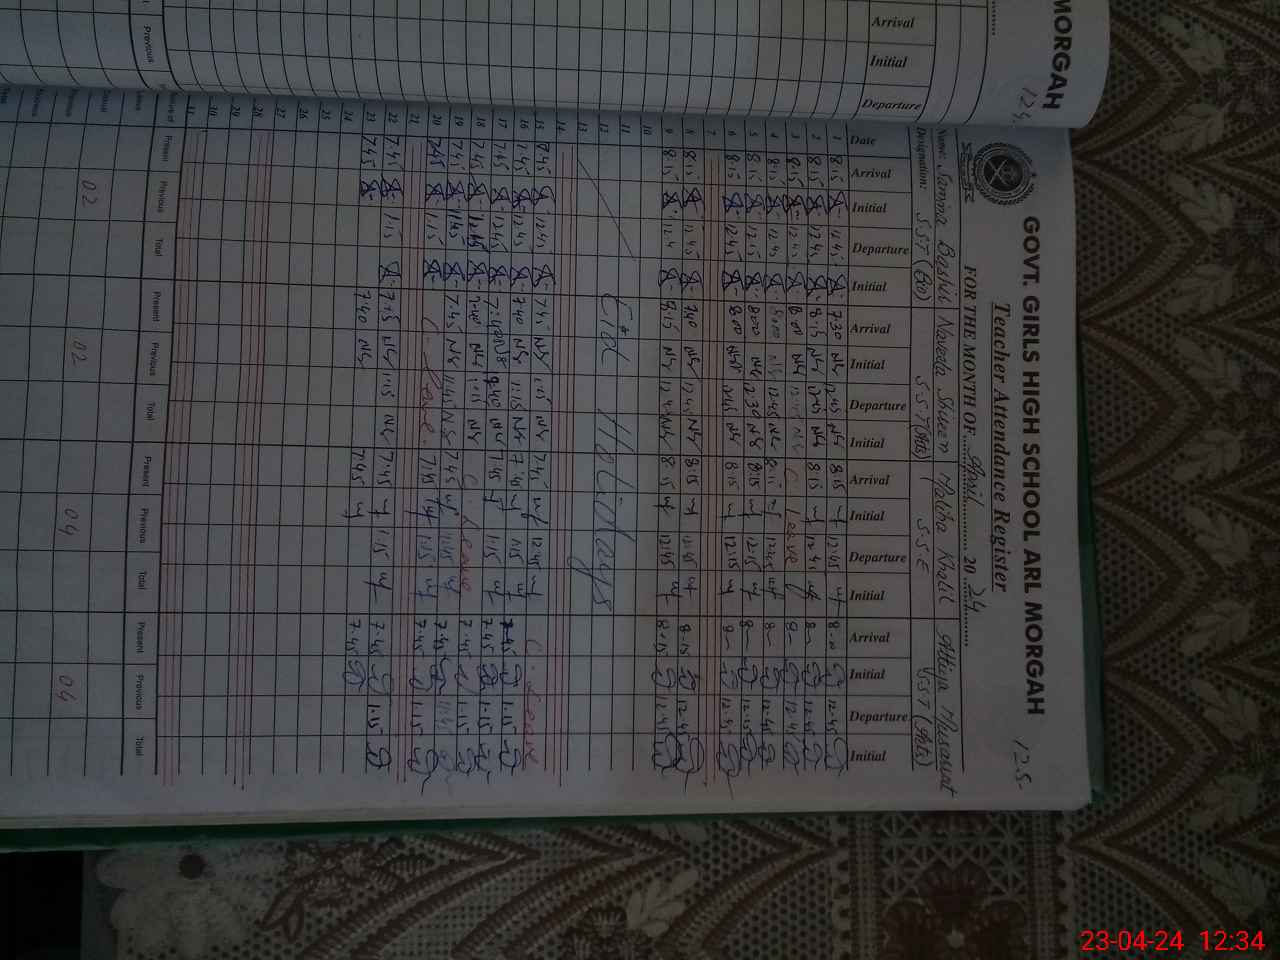 MORGAH
Arrival
Initial
Departure
GOVT. GIRLS HIGH SCHOOL ARL MORGAH
125
Teacher Attendance Register
FOR THE MONTH OF April 2024
Name: Samma Bashir Naveda Shireen Maliha Khalil Attiya Musarrat
Designation: SST (Bio) SST (Arts) S.S.E SST (Arts)
Date Arrival Initial Departure Initial Arrival Initial Departure Initial Arrival Initial Departure Initial Arrival Initial Departure Initial
1 8:15 12:45 7:30 12:45 8:15 12:45 8:00 12:45
2 8:15 12:45 8:15 12:45 8:15 12:45 8 12:45
3 8:15 12:45 8:00 12:45 C. Leave 8 12:45
4 8:15 12:45 8:00 12:45 8:15 12:45 8 12:45
5 8:15 12:15 8:00 12:30 8:15 12:15 8 12:15
6 8:15 12:45 8:00 12:45 8:15 12:15 8 12:45
7
8 8:15 12:45 7:40 12:45 8:15 12:45 8:15 12:45
9 8:15 12:4 8:15 12:45 8:15 12:45 8:15 12:45
10
11 Eid Holidays
12
13
14
15 7:45 12:45 7:45 1:15 7:45 12:45 C. Leave
16 7:45 12:45 7:40 1:15 7:45 1:15 7:45 1:15
17 7:45 12:15 7:40 7:45 1:15 7:45 1:15
18 7:45 12:45 7:40 1:15 C. Leave 7:45 1:15
19 7:45 11:45 7:45 11:45 7:45 11:45 7:45 11:45
20 7:45 1:15 C. Leave 7:45 1:15 7:45 1:15
21
22 7:45 1:15 7:45 1:15 7:45 1:15 7:45 1:15
23 7:45 7:40 7:45 7:45
24
25
26
27
28
29
30
31
Present Previous Total Present Previous Total Present Previous Total Present Previous Total
02 02 04 04
23-04-24 12:34